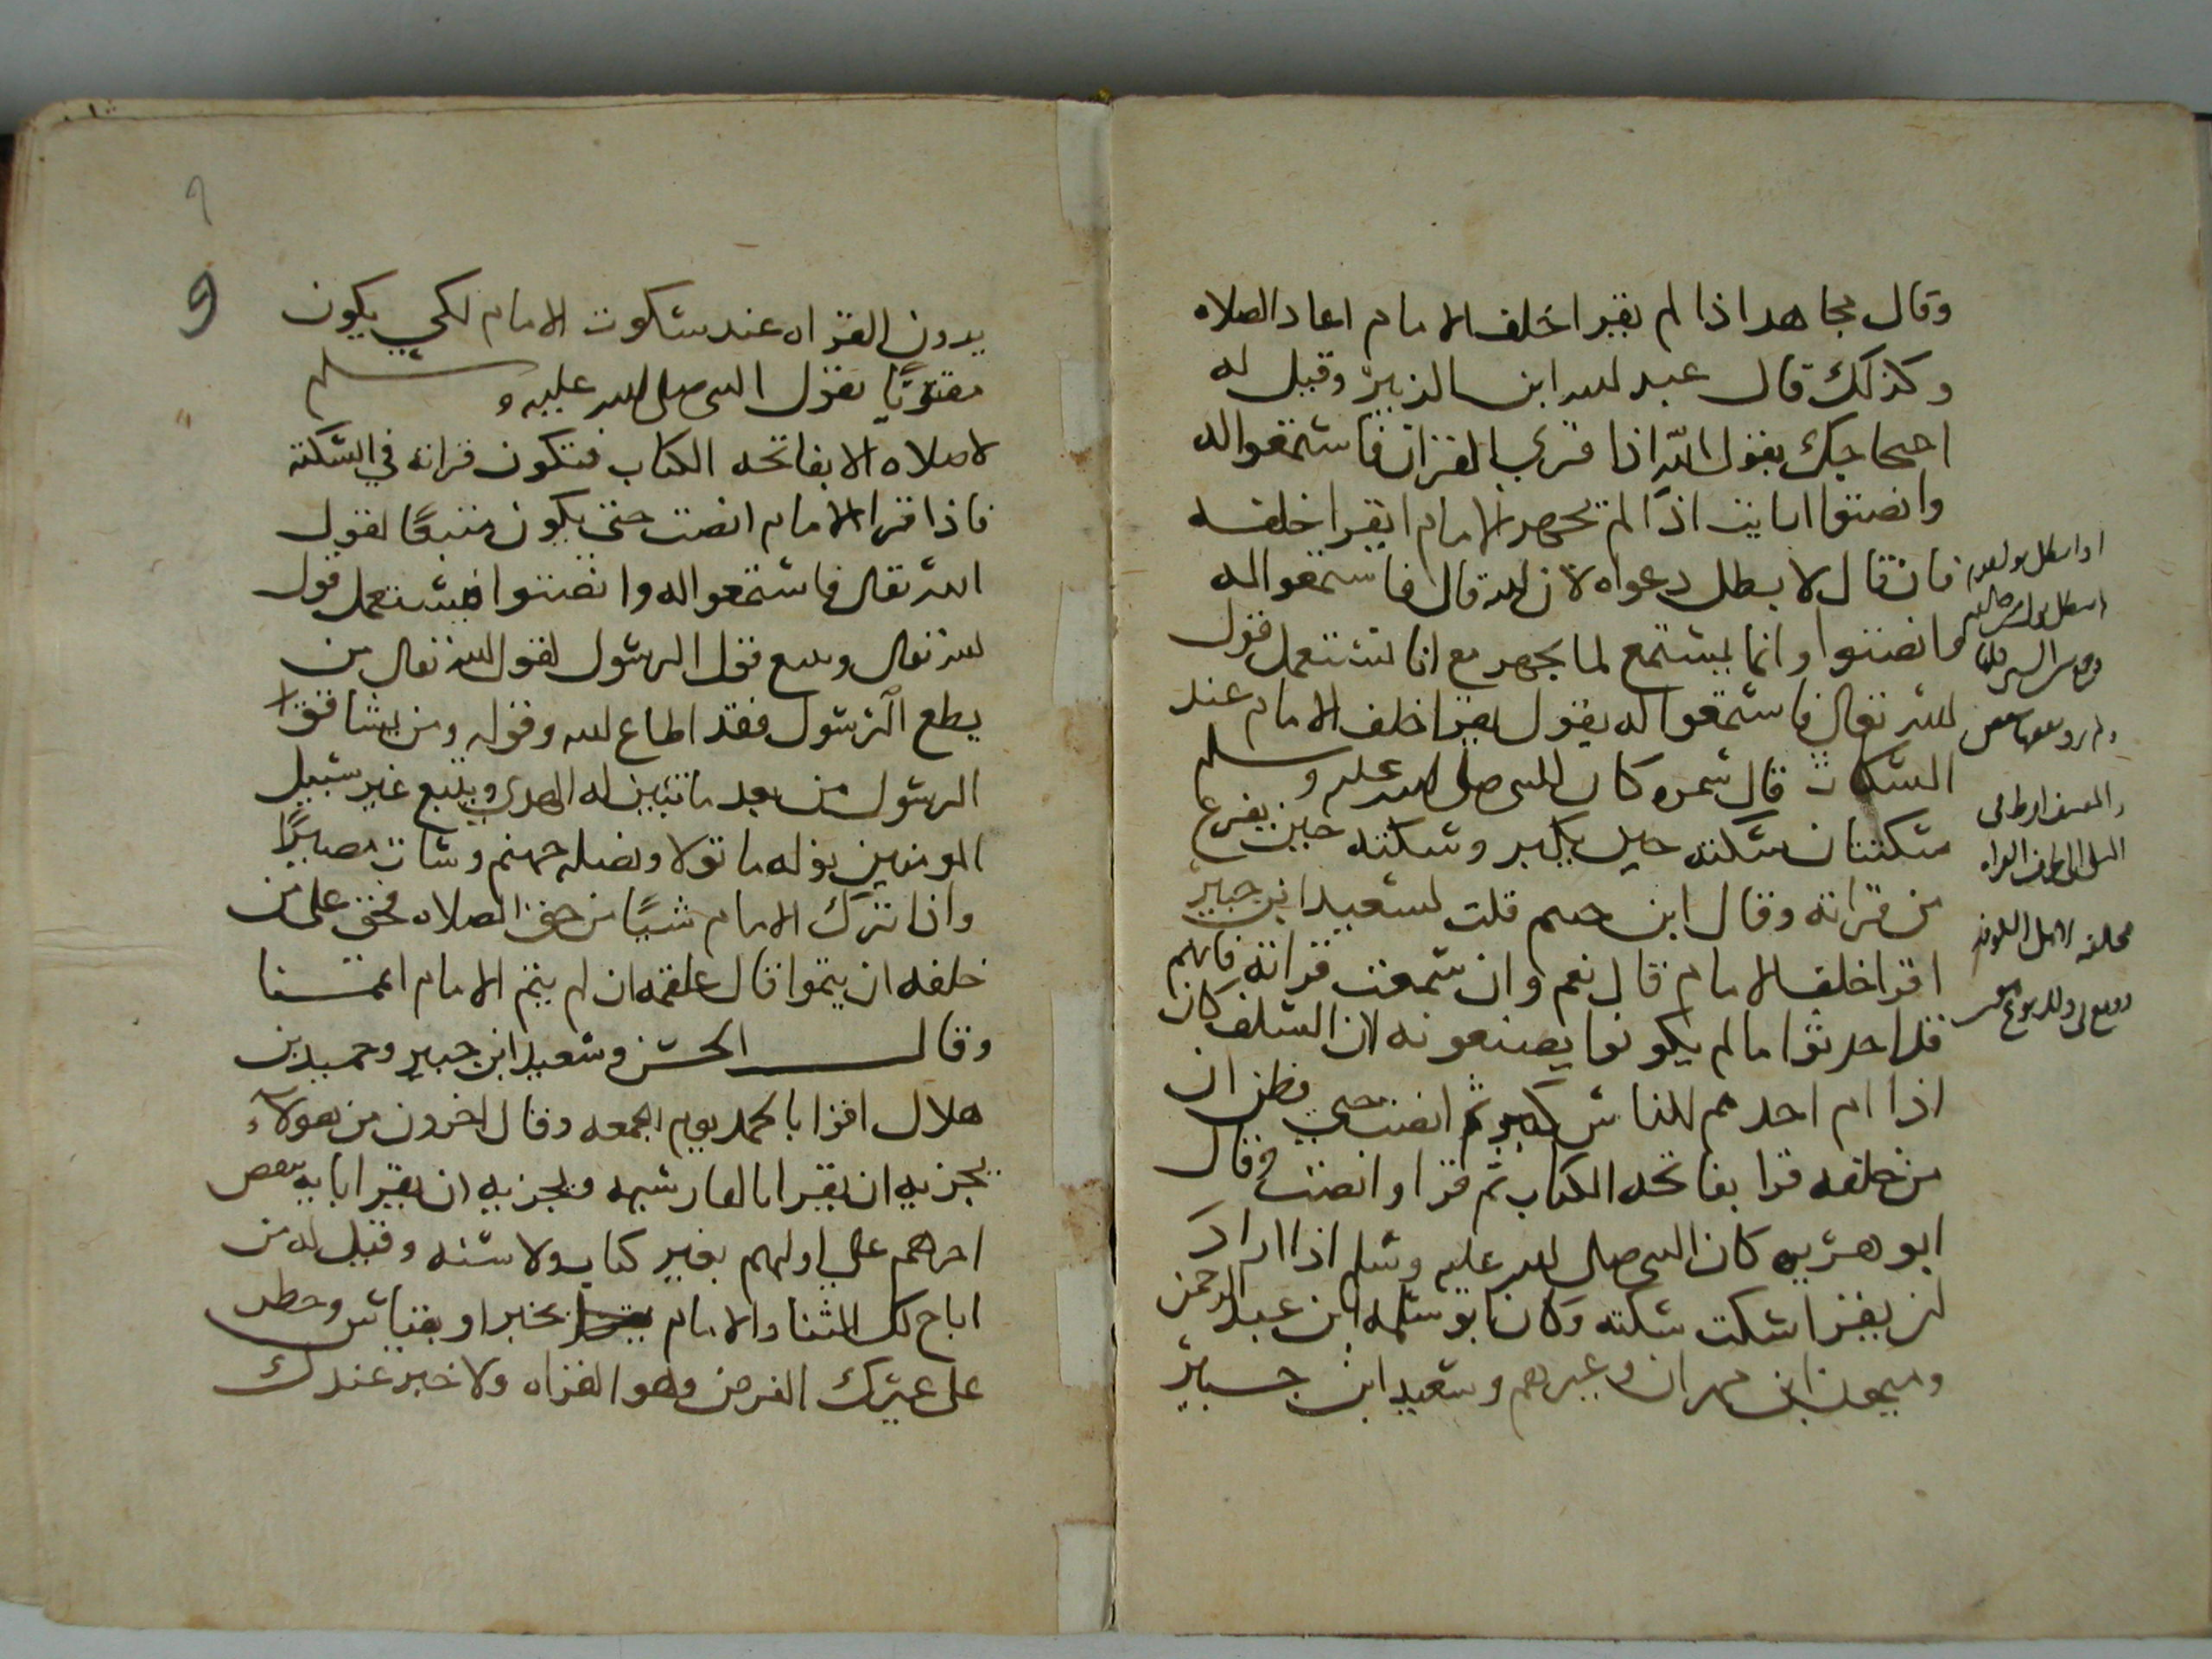 وقال مجاهد اذا لم يقرا خلف الامام اعاد الصلاه
وكذلك قال عبد الله ابن الزبير وقيل له
احتجاجك بقول الله اذا قرى القران فاستمعوا له
وانصتوا ارايت اذا لم يجهر الامام ايقرا خلفه
فان قال لا بطل دعواه لان الله قال فاستمعوا له
وانصتوا وانما يستمع لما يجهر مع انا نستعمل قول
الله تعالى فاستمعوا له يقول يقرا خلف الامام عند
السكتات قال سمره كان للنبى صلى الله عليه وسلم
سكتتان سكته حين يكبر وسكته حين يفرغ
من قراته وقال ابن خثيم قلت لسعيد ابن جبير
اقرا خلف الامام قال نعم وان سمعت قراته فانهم
قد احدثوا ما لم يكونوا يصنعونه لان السلف كان
اذا ام احدهم للناس كبر ثم انصت حتى يظن ان
من خلفه قرا بفاتحه الكتاب ثم قرا وانصت وقال
ابو هريره كان النبى صلى الله عليه وسلم اذا اراد
ان يقرا سكت سكته وكان ابو سلمه ابن عبد الرحمن
وميمون ابن مهران وغيرهم وسعيد ابن جبير
9
يرون القراه عند سكوت الامام لكي يكون
مقتديا بقول النبى صلى الله عليه وسلم
لا صلاه الا بفاتحه الكتاب فتكون قراته في السكته
فاذا قرا الامام انصت حتى يكون متبعًا لقول
الله تعالى فاستمعوا له وانصتوا فيستعمل قول
الله تعالى ويتبع قول الرسول لقول الله تعالى من
يطع الرسول فقد اطاع الله وقوله ومن يشاقق
الرسول من بعد ما تبين له الهدى ويتبع غير سبيل
المومنين نوله ما تولا ونصله جهنم وسات مصيرًا
واذا ترك الامام شيًا من حق الصلاه فحق على من
خلفه ان يتموا قال علقمه ان لم يتم الامام اتممنا
وقال الحسن وسعيد ابن جبير وحميد بن
هلال اقرا بالحمد يوم الجمعه وقال اخرون من هولاء
يجزيه ان يقرا بالفارسيه ويجزيه ان يقرا بايه ينقض
اخرهم على اولهم بغير كتاب ولا سنه وقيل له من
اباح لك الثنا والامام يقرا بخبر او بقياس وحظر
على غيرك الفرض وهو القراه ولا خبر عندك